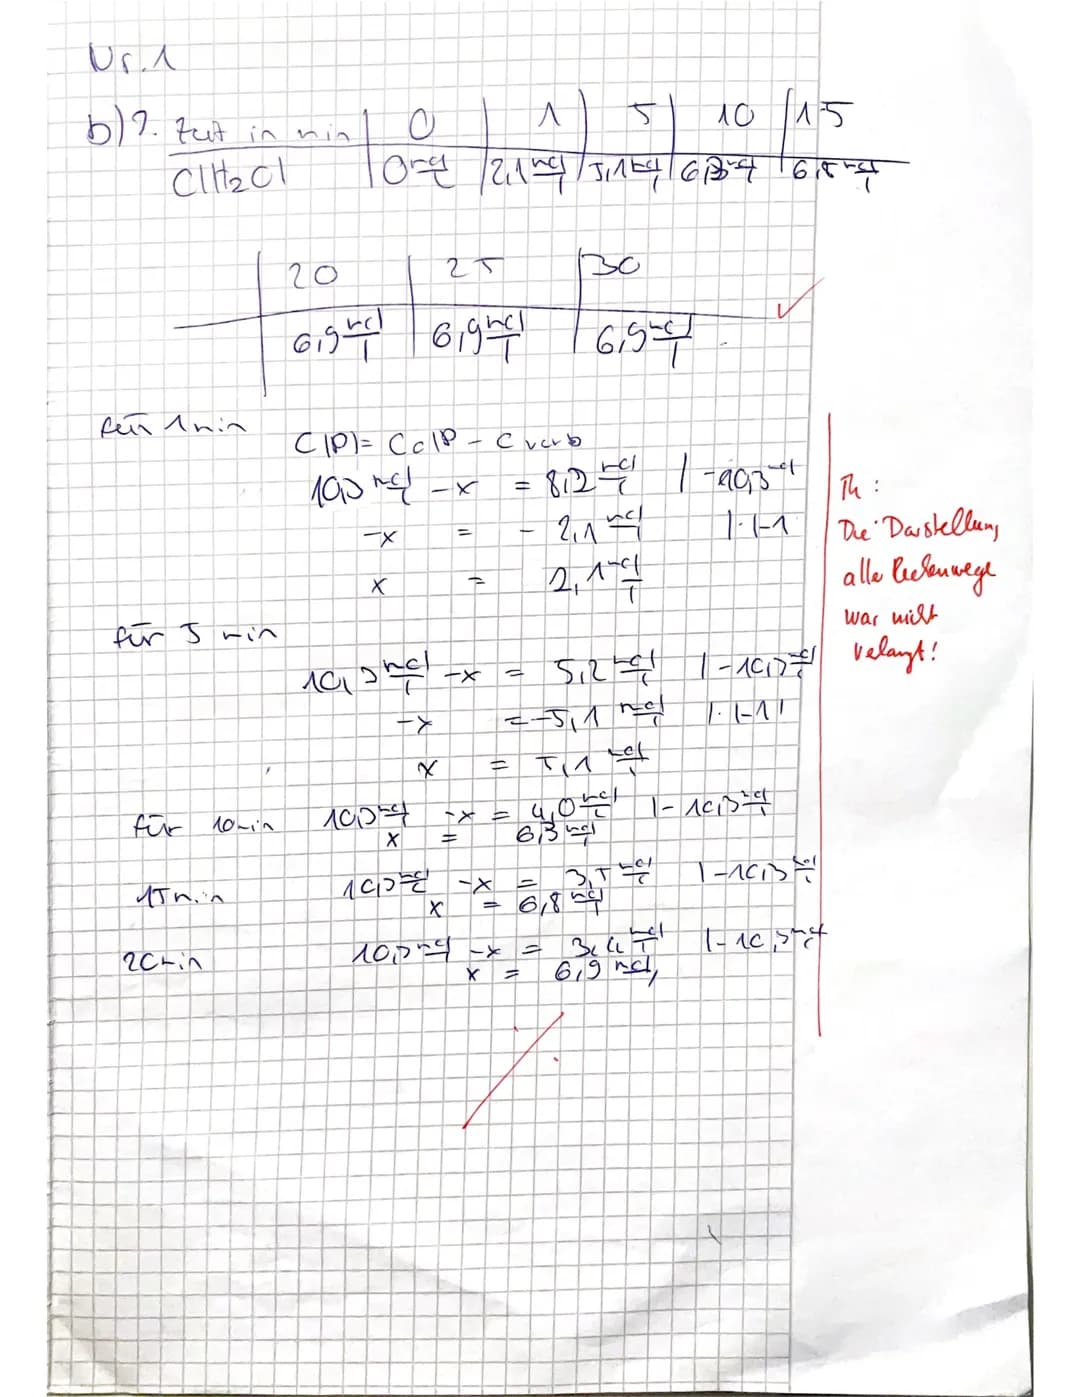 Nr. 1
b) 2. Zeit in min | 0 | 1 | 5 | 10 | 15
C(H₂Cl | 0 mol/l | 2,1 mol/l | 5,1 mol/l | 6,3 mol/l | 6,8 mol/l
20 | 25 | 30
6,9 mol/l | 6,9 mol/l | 6,9 mol/l
für 1 min
C(P) = C0(P - C verb
10,3 mol/l - x = 8,2 mol/l | -10,3 mol/l
-x = - 2,1 mol/l | ·(-1
x = 2,1 mol/l
für 5 min
10,3 mol/l - x = 5,2 mol/l | -10,3 mol/l
-x = -5,1 mol/l | ·(-1)
x = 5,1 mol/l
für 10 min 10,3 mol/l - x = 4,0 mol/l | -10,3 mol/l
x = 6,3 mol/l
15 min 10,3 mol/l - x = 3,5 mol/l | -10,3 mol/l
x = 6,8 mol/l
20 min 10,3 mol/l - x = 3,4 mol/l | -10,3 mol/l
x = 6,9 mol/l
Th :
Die Darstellung
alle Rechenwege
war nicht
velangt!